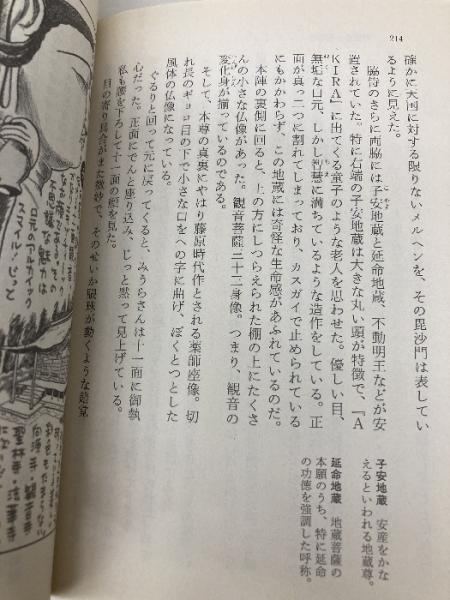 214
確かに天国に対する限りないメルヘンを、その毘沙門は表してい
るように見えた。
脇侍のさらに両脇には子安地蔵と延命地蔵、不動明王などが安
置されていた。特に右端の子安地蔵は大きな丸い頭が特徴で、『A
KIRA』に出てくる童子のような老人を思わせた。優しい目、
無垢な口元、しかし智慧に満ちているような造作をしている。正
面が真っ二つに割れてしまっており、カスガイで止められている
にもかかわらず、この地蔵には奇怪な生命感があふれているのだ。
本陣の裏側に回ると、上の方にしつらえられた棚の上にたくさ
んの小さな仏像があった。観音菩薩三十三身像。つまり、観音の
変化身が揃っているのである。
そして、本尊の真裏にやはり藤原時代作とされる薬師座像。切
れ長のギョロ目の下で小さな口をへの字に曲げ、ぼくとつとした
風体の仏像になっている。
ぐるりと回って元に戻ってくると、みうらさんは十一面に御執
心だった。正面にでんと座り込み、じっと黙って見上げている。
私も腰を下ろして十一面の顔を見た。
目の寄り具合がまた微妙で、そのせいか眼球が動くような錯覚
子安地蔵　安産をかな
えるといわれる地蔵尊。
延命地蔵　地蔵菩薩の
本願のうち、特に延命
の功徳を強調した呼称。
不思議な魅力は
口元のアルカイック
スマイル